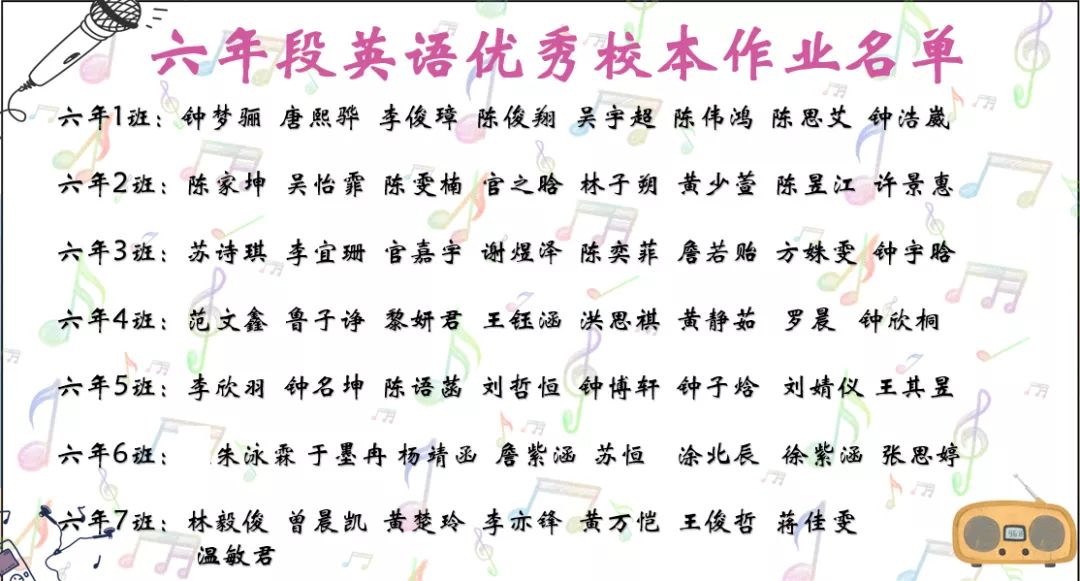 六年段英语优秀校本作业名单
六年1班：钟梦骊 唐熙骅 李俊璋 陈俊翔 吴宇超 陈伟鸿 陈思艾 钟浩崴
六年2班：陈家坤 吴怡霏 陈雯楠 官之晗 林子朔 黄少萱 陈昱江 许景惠
六年3班：苏诗琪 李宜珊 官嘉宇 谢煜泽 陈奕菲 詹若贻 方姝雯 钟宇晗
六年4班：范文鑫 鲁子诤 黎妍君 王钰涵 洪思祺 黄静茹 罗晨 钟欣桐
六年5班：李欣羽 钟名坤 陈语菡 刘哲恒 钟博轩 钟子焓 刘婧仪 王其昱
六年6班： 朱泳霖 于墨冉 杨靖函 詹紫涵 苏恒 涂北辰 徐紫涵 张思婷
六年7班：林毅俊 曾晨凯 黄楚玲 李亦锋 黄万恺 王俊哲 蒋佳雯
温敏君